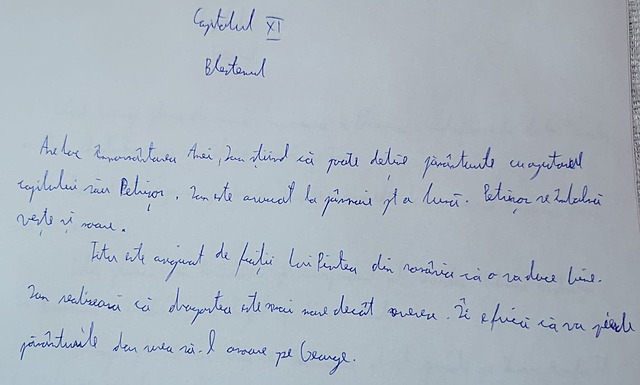 Capitolul XI
Blestemul
Are loc înmormântarea Anei, Ion știind că poate deține pământurile cu ajutorul
copilului său Petrișor. Ion este aruncat la pușcărie o lună. Petrișor se îmbolnă
vește și moare.
Titu este asigurat de frații lui Pintea din românia că o va duce bine.
Ion realizează că dragostea este mai mare decât averea. Îi e frică că va pierde
pământurile dar vrea să-l omoare pe George.